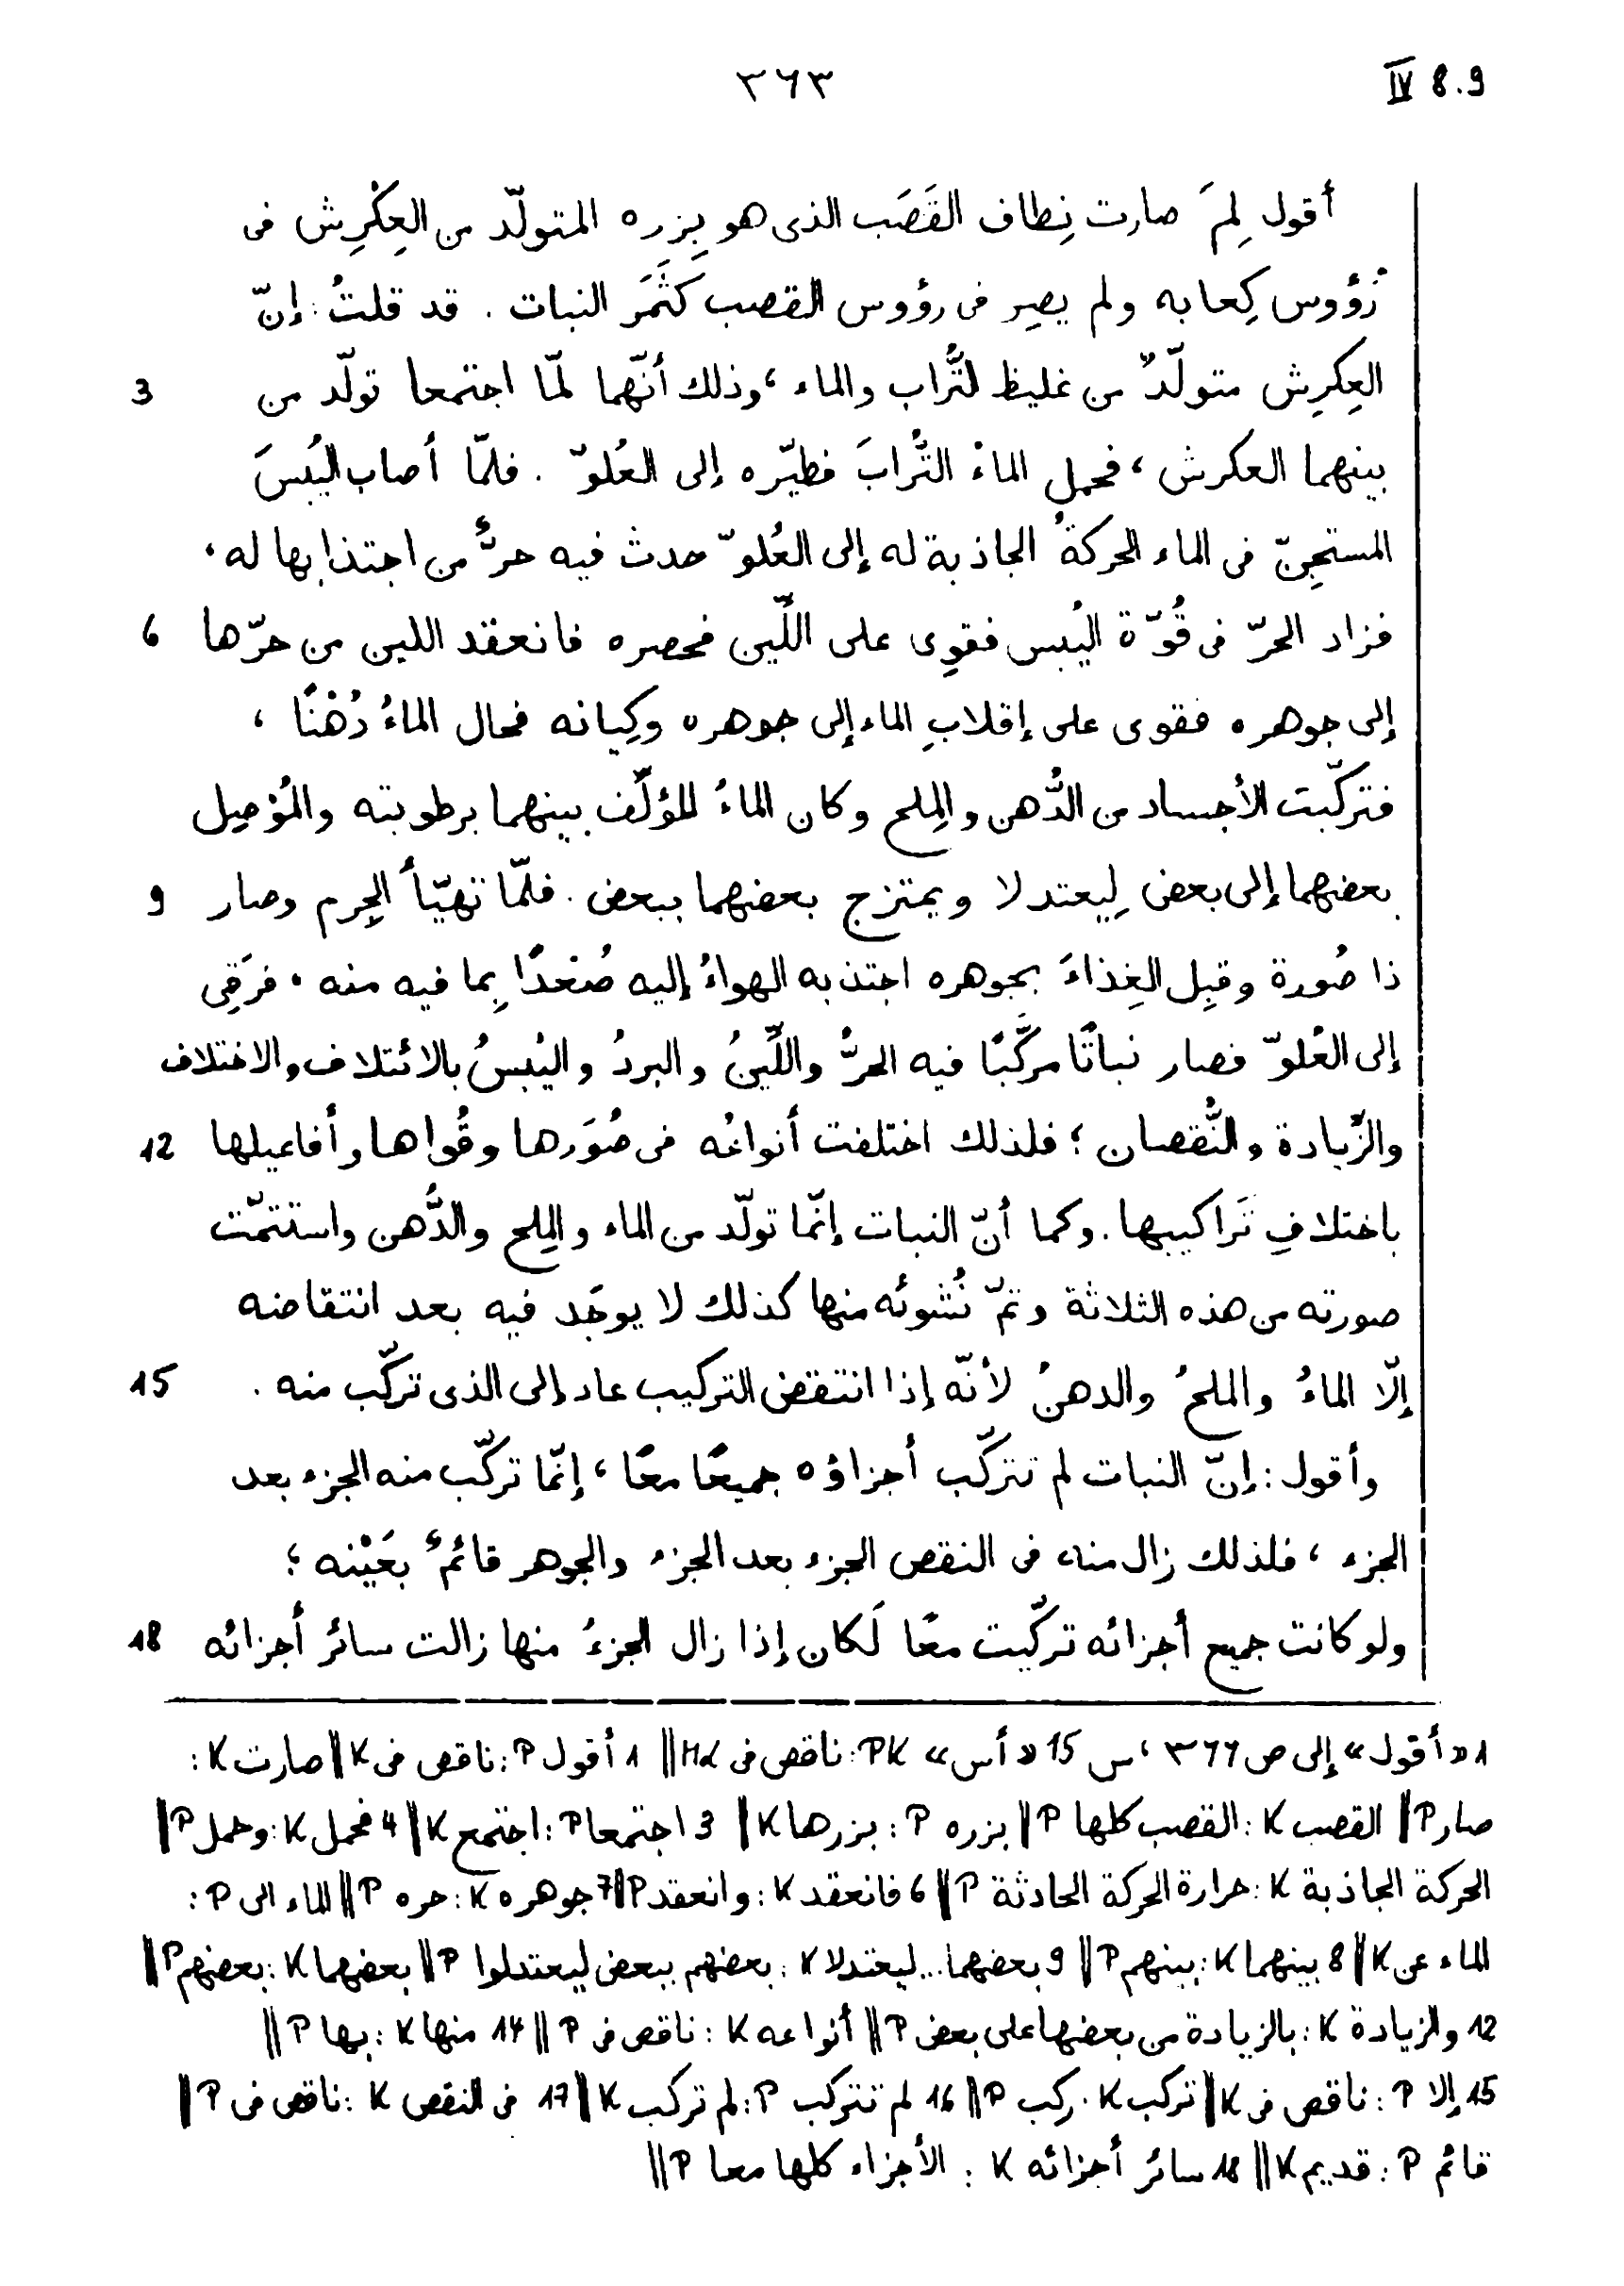 ٣٦٣ IV 8.9
أقول لِمَ صارت نِطاف القَصَب الذى هو بِزره المتولّد من العِكْرِش فى
رُؤوس كِعابه ولم يصِر فى رؤوس القصب كثَمَر النبات . قد قلتُ : إنّ
العِكرِش متولّدٌ من غليظ التُّراب والماء ، وذلك أنّهما لمّا اجتمعا تولّد من 3
بينهما العكرش ، فحمل الماءُ التُّرابَ فطيّره إلى العُلوّ . فلمّا أصاب اليُبسَ
المستجِنّ فى الماء الحركةُ الجاذبة له إلى العُلوّ حدث فيه حرٌّ من اجتذابها له ،
فزاد الحرّ فى قُوّة اليُبس فقوِى على اللِّين فحصره فانعقد اللين من حرّها 6
إلى جوهره فقوى على إقلابِ الماء إلى جوهره وكِيانه فحال الماءُ دُهْنًا ،
فتركّبت الأجساد من الدُّهن والمِلح وكان الماءُ المؤلِّف بينهما برطوبته والمُوْصِل
بعضهما إلى بعض لِيعتدلا ويمتزج بعضهما ببعض . فلمّا تهيّأ الجِرم وصار 9
ذا صُورة وقبِل الغِذاءَ بجوهره اجتذبه الهواءُ إليه صُعْدًا بِما فيه منه . فرَقِى
إلى العُلوّ فصار نباتًا مركَّبًا فيه الحرُّ واللِّينُ والبردُ واليُبسُ بالائتلاف والاختلاف
والزّيادة والنُّقصان ؛ فلذلك اختلفت أنواعُه فى صُوَرها وقُواها وأفاعيلها 12
باختلافِ تَراكيبها . وكما أنّ النبات إنّما تولّد من الماء والمِلح والدُّهن واستتمّت
صورته من هذه الثلاثة وتمّ نُشوئه منها كذلك لا يوجَد فيه بعد انتقاضه
إلّا الماءُ والملحُ والدهنُ لأنّه إذا انتقض التركيب عاد إلى الذى تركّب منه . 15
وأقول : إنّ النبات لم تتركّب أجزاؤه جميعًا معًا ، إنّما تركّب منه الجزء بعد
الجزء ، فلذلك زال منه فى النقص الجزء بعد الجزء والجوهر قائمٌ بعَيْنه ؛
ولو كانت جميع أجزائه تركّبت معًا لَكان إذا زال الجزءُ منها زالت سائر أجزائه 18
1 «أقول» إلى ص ٣٦٦ ، س 15 «أس» PK : ناقص فى Md || 1 أقول P : ناقص فى K || صارت K :
صار P || القصب K : القصب كلها P || بزره P : بزرها K || 3 اجتمعا P : اجتمع K || 4 فحمل K : وحمل P ||
الحركة الجاذبة K : حرارة الحركة الحادثة P || 6 فانعقد K : وانعقد P || 7 جوهره K : حره P || الماء الى P :
الماء عن K || 8 بينهما K : بينهم P || 9 بعضهما ... ليعتدلا K : بعضهم ببعض ليعتدلوا P || بعضهما K : بعضهم P ||
12 والزيادة K : بالزيادة من بعضها على بعض P || أنواعه K : ناقص فى P || 14 منها K : بها P ||
15 إلا P : ناقص فى K || تركب K : ركب P || 16 لم تتركب P : لم تركب K || 17 فى النقص K : ناقص فى P ||
قائم P : قديم K || 18 سائر أجزائه K : الأجزاء كلها معا P ||